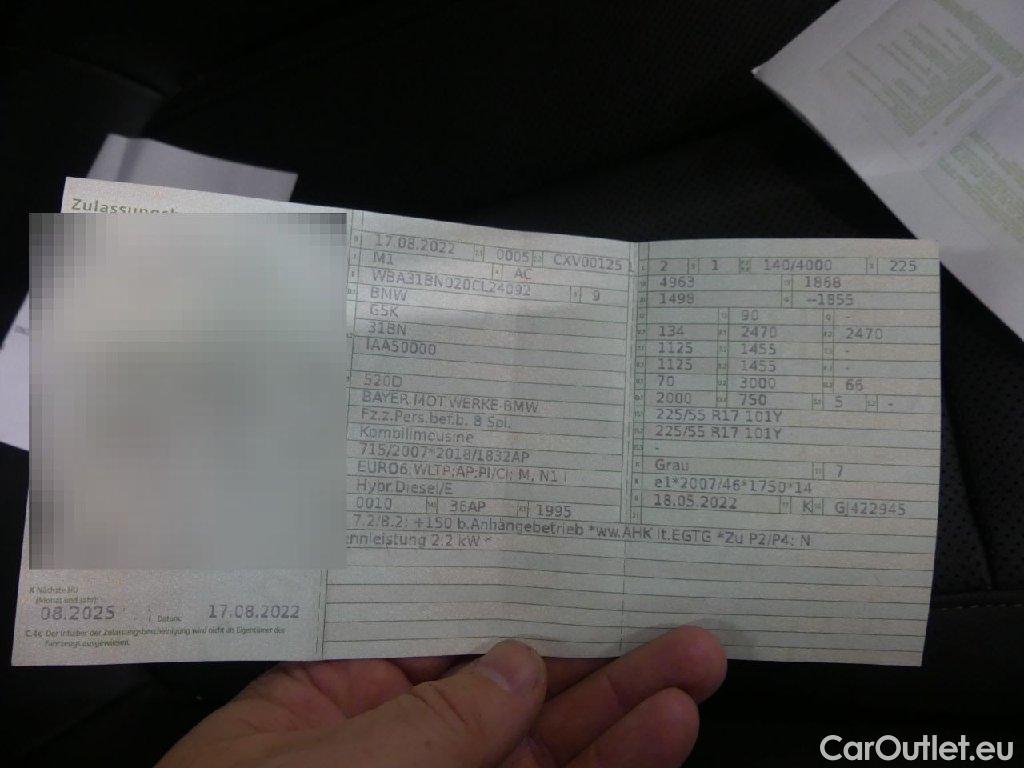 Zulassungsb
17.08.2022 0005 CXV00125 1
M1 AC
WBA31BN020CL24092 9
BMW
G5K
31BN
IAA50000
520D
BAYER.MOT.WERKE-BMW
Fz.z.Pers.bef.b. 8 Spl.
Kombilimousine
715/2007*2018/1832AP
EURO6;WLTP;AP;PI/CI; M, N1 I
Hybr.Diesel/E
0010 36AP 1995
7.2/8.2: +150 b.Anhängebetrieb *ww.AHK lt.EGTG *Zu P2/P4: N
ennleistung 2.2 kW *
2 1 140/4000 225
4963 1868
1498 --1855
90 -
134 2470 2470
1125 1455 -
1125 1455 -
70 3000 66
2000 750 5 -
225/55 R17 101Y
225/55 R17 101Y
-
Grau 7
e1*2007/46*1750*14
18.05.2022 K GJ422945
X Nächste HU
(Monat und Jahr)
08.2025 Datum: 17.08.2022
C.4c Der Inhaber der Zulassungsbescheinigung wird nicht als Eigentümer des
Fahrzeugs ausgewiesen.
CarOutlet.eu